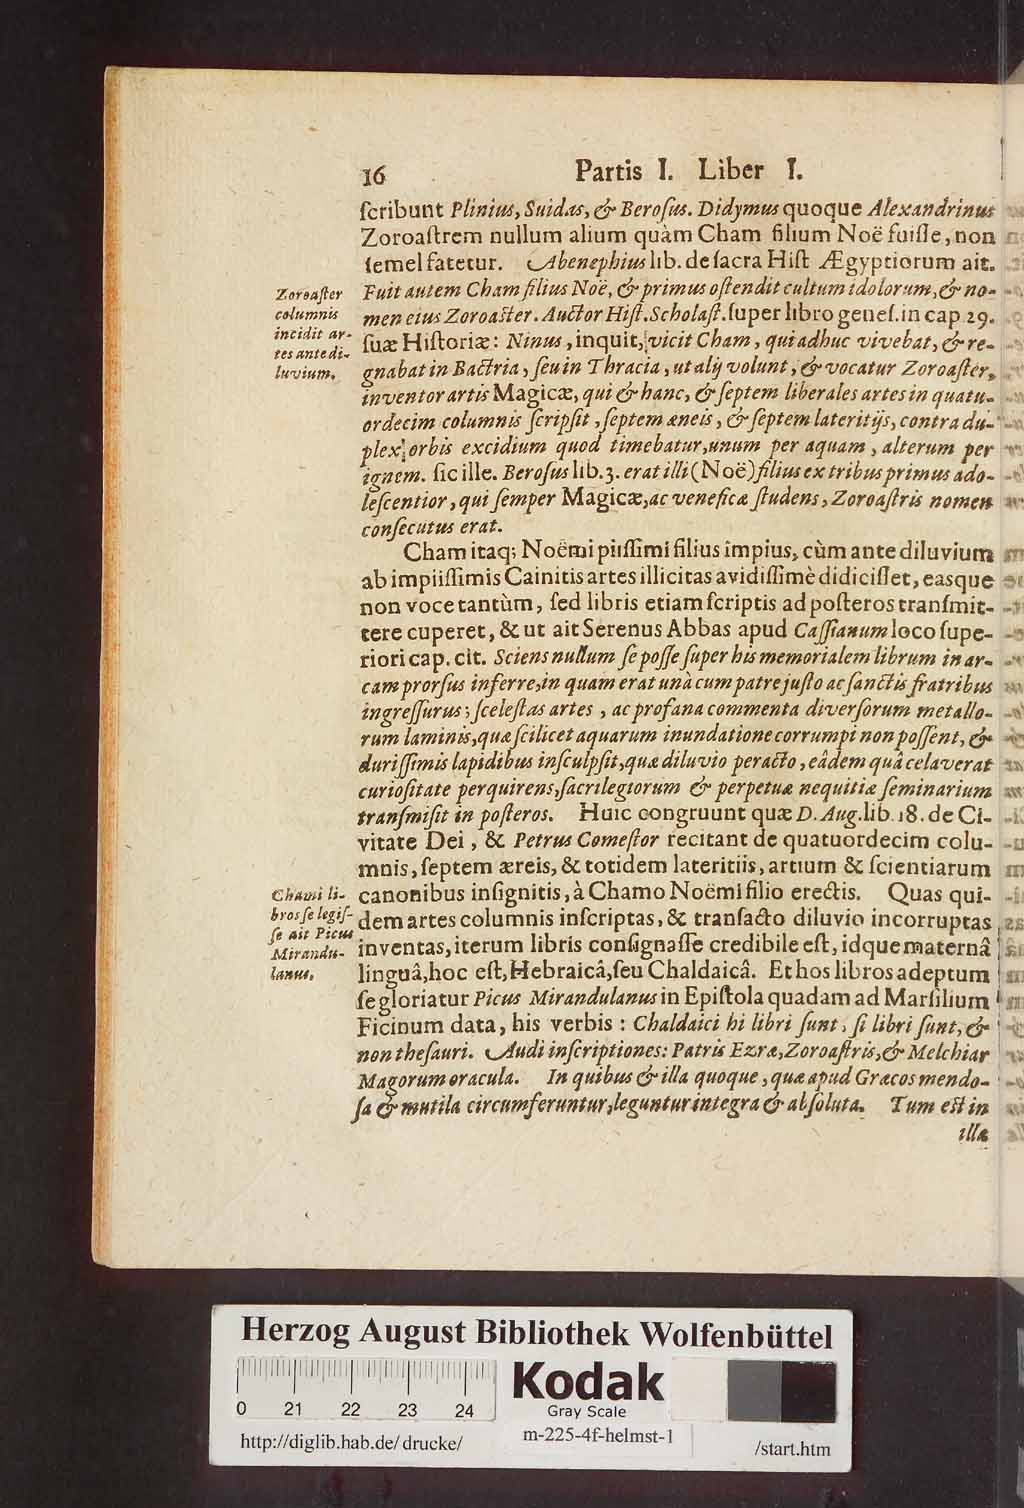 16 Partis I. Liber I.
ſcribunt Plinius, Suidas, & Beroſus. Didymus quoque Alexandrinus
Zoroaſtrem nullum alium quàm Cham filium Noë fuiſſe, non
ſemel fatetur. Abenephius lib. de ſacra Hiſt Ægyptiorum ait.
Fuit autem Cham filius Noë, & primus oſtendit cultum idolorum, & no-
men eius Zoroaſter. Auctor Hiſt. Scholaſt. ſuper libro geneſ. in cap 29.
ſuæ Hiſtoriæ: Ninus, inquit, vicit Cham, qui adhuc vivebat, & re-
gnabat in Bactria, ſeu in Thracia, ut alij volunt, & vocatur Zoroaſter,
inventor artis Magicæ, qui & hanc, & ſeptem liberales artes in quatu-
ordecim columnis ſcripſit, ſeptem æneis, & ſeptem lateritijs, contra du-
plex orbis excidium quod timebatur, unum per aquam, alterum per
ignem. ſic ille. Beroſus lib. 3. erat illi (Noë) filius ex tribus primus ado-
leſcentior, qui ſemper Magicæ, ac veneficæ ſtudens, Zoroaſtris nomen
conſecutus erat.
Zoroaſter
columnis
incidit ar-
tes ante di-
luvium.
Cham itaq; Noëmi piiſſimi filius impius, cùm ante diluvium
ab impiiſſimis Cainitis artes illicitas avidiſſimè didiciſſet, easque
non voce tantùm, ſed libris etiam ſcriptis ad poſteros tranſmit-
tere cuperet, & ut ait Serenus Abbas apud Caſſianum loco ſupe-
riori cap. cit. Sciens nullum ſe poſſe ſuper his memorialem librum in ar-
cam prorſus inferre, in quam erat unà cum patre juſto ac ſanctis fratribus
ingreſſurus; ſceleſtas artes, ac profana commenta diverſorum metallo-
rum laminis, quæ ſcilicet aquarum inundatione corrumpi non poſſent, &
duriſſimis lapidibus inſculpſit, quæ diluvio peracto, eâdem quâ celaverat
curioſitate perquirens, ſacrilegiorum & perpetuæ nequitiæ ſeminarium
tranſmiſit in poſteros. Huic congruunt quæ D. Aug. lib. 18. de Ci-
vitate Dei, & Petrus Comeſtor recitant de quatuordecim colu-
mnis, ſeptem æreis, & totidem lateritiis, artium & ſcientiarum
canonibus inſignitis, à Chamo Noëmi filio erectis. Quas qui-
dem artes columnis inſcriptas, & tranſacto diluvio incorruptas
inventas, iterum libris conſignaſſe credibile eſt, idque maternâ
linguâ, hoc eſt, Hebraicâ, ſeu Chaldaicâ. Et hos libros adeptum
ſe gloriatur Picus Mirandulanus in Epiſtola quadam ad Marſilium
Ficinum data, his verbis: Chaldaici hi libri ſunt, ſi libri ſunt, &
non theſauri. Audi inſcriptiones: Patris Ezræ, Zoroaſtris, & Melchiar
Magorum oracula. In quibus & illa quoque, quæ apud Græcos mendo-
ſa & mutila circumferuntur, leguntur integra & abſoluta. Tum eſt in
illa
Chami li-
bros ſe legiſ-
ſe ait Picus
Mirandu-
lanus.
Herzog August Bibliothek Wolfenbüttel
0 21 22 23 24
Kodak
Gray Scale
http://diglib.hab.de/drucke/ m-225-4f-helmst-1 /start.htm